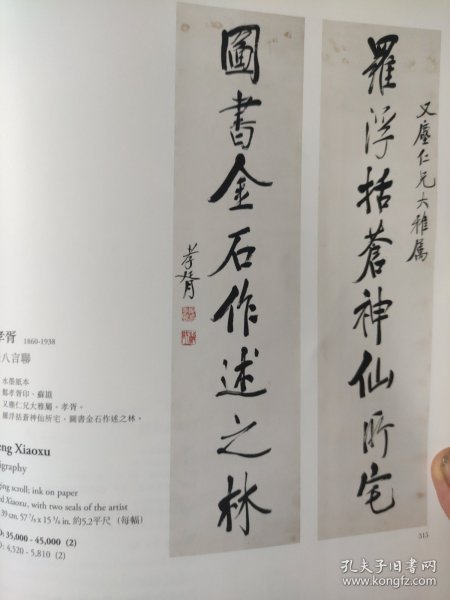 羅浮括蒼神仙所宅
又塵仁兄大雅属
圖書金石作述之林
孝胥
孝胥 1860-1938
八言聯
水墨紙本
鄭孝胥印、蘇龕
又塵仁兄大雅屬。孝胥。
羅浮括蒼神仙所宅,圖書金石作述之林。
eng Xiaoxu
igraphy
ging scroll; ink on paper
ed Xiaoxu, with two seals of the artist
39 cm. 57 x 15 in. 約5.2平尺(每幅)
D: 35,000 - 45,000 (2)
D: 4,520 - 5,810 (2)
315
孔夫子旧书网
www.kongfz.com